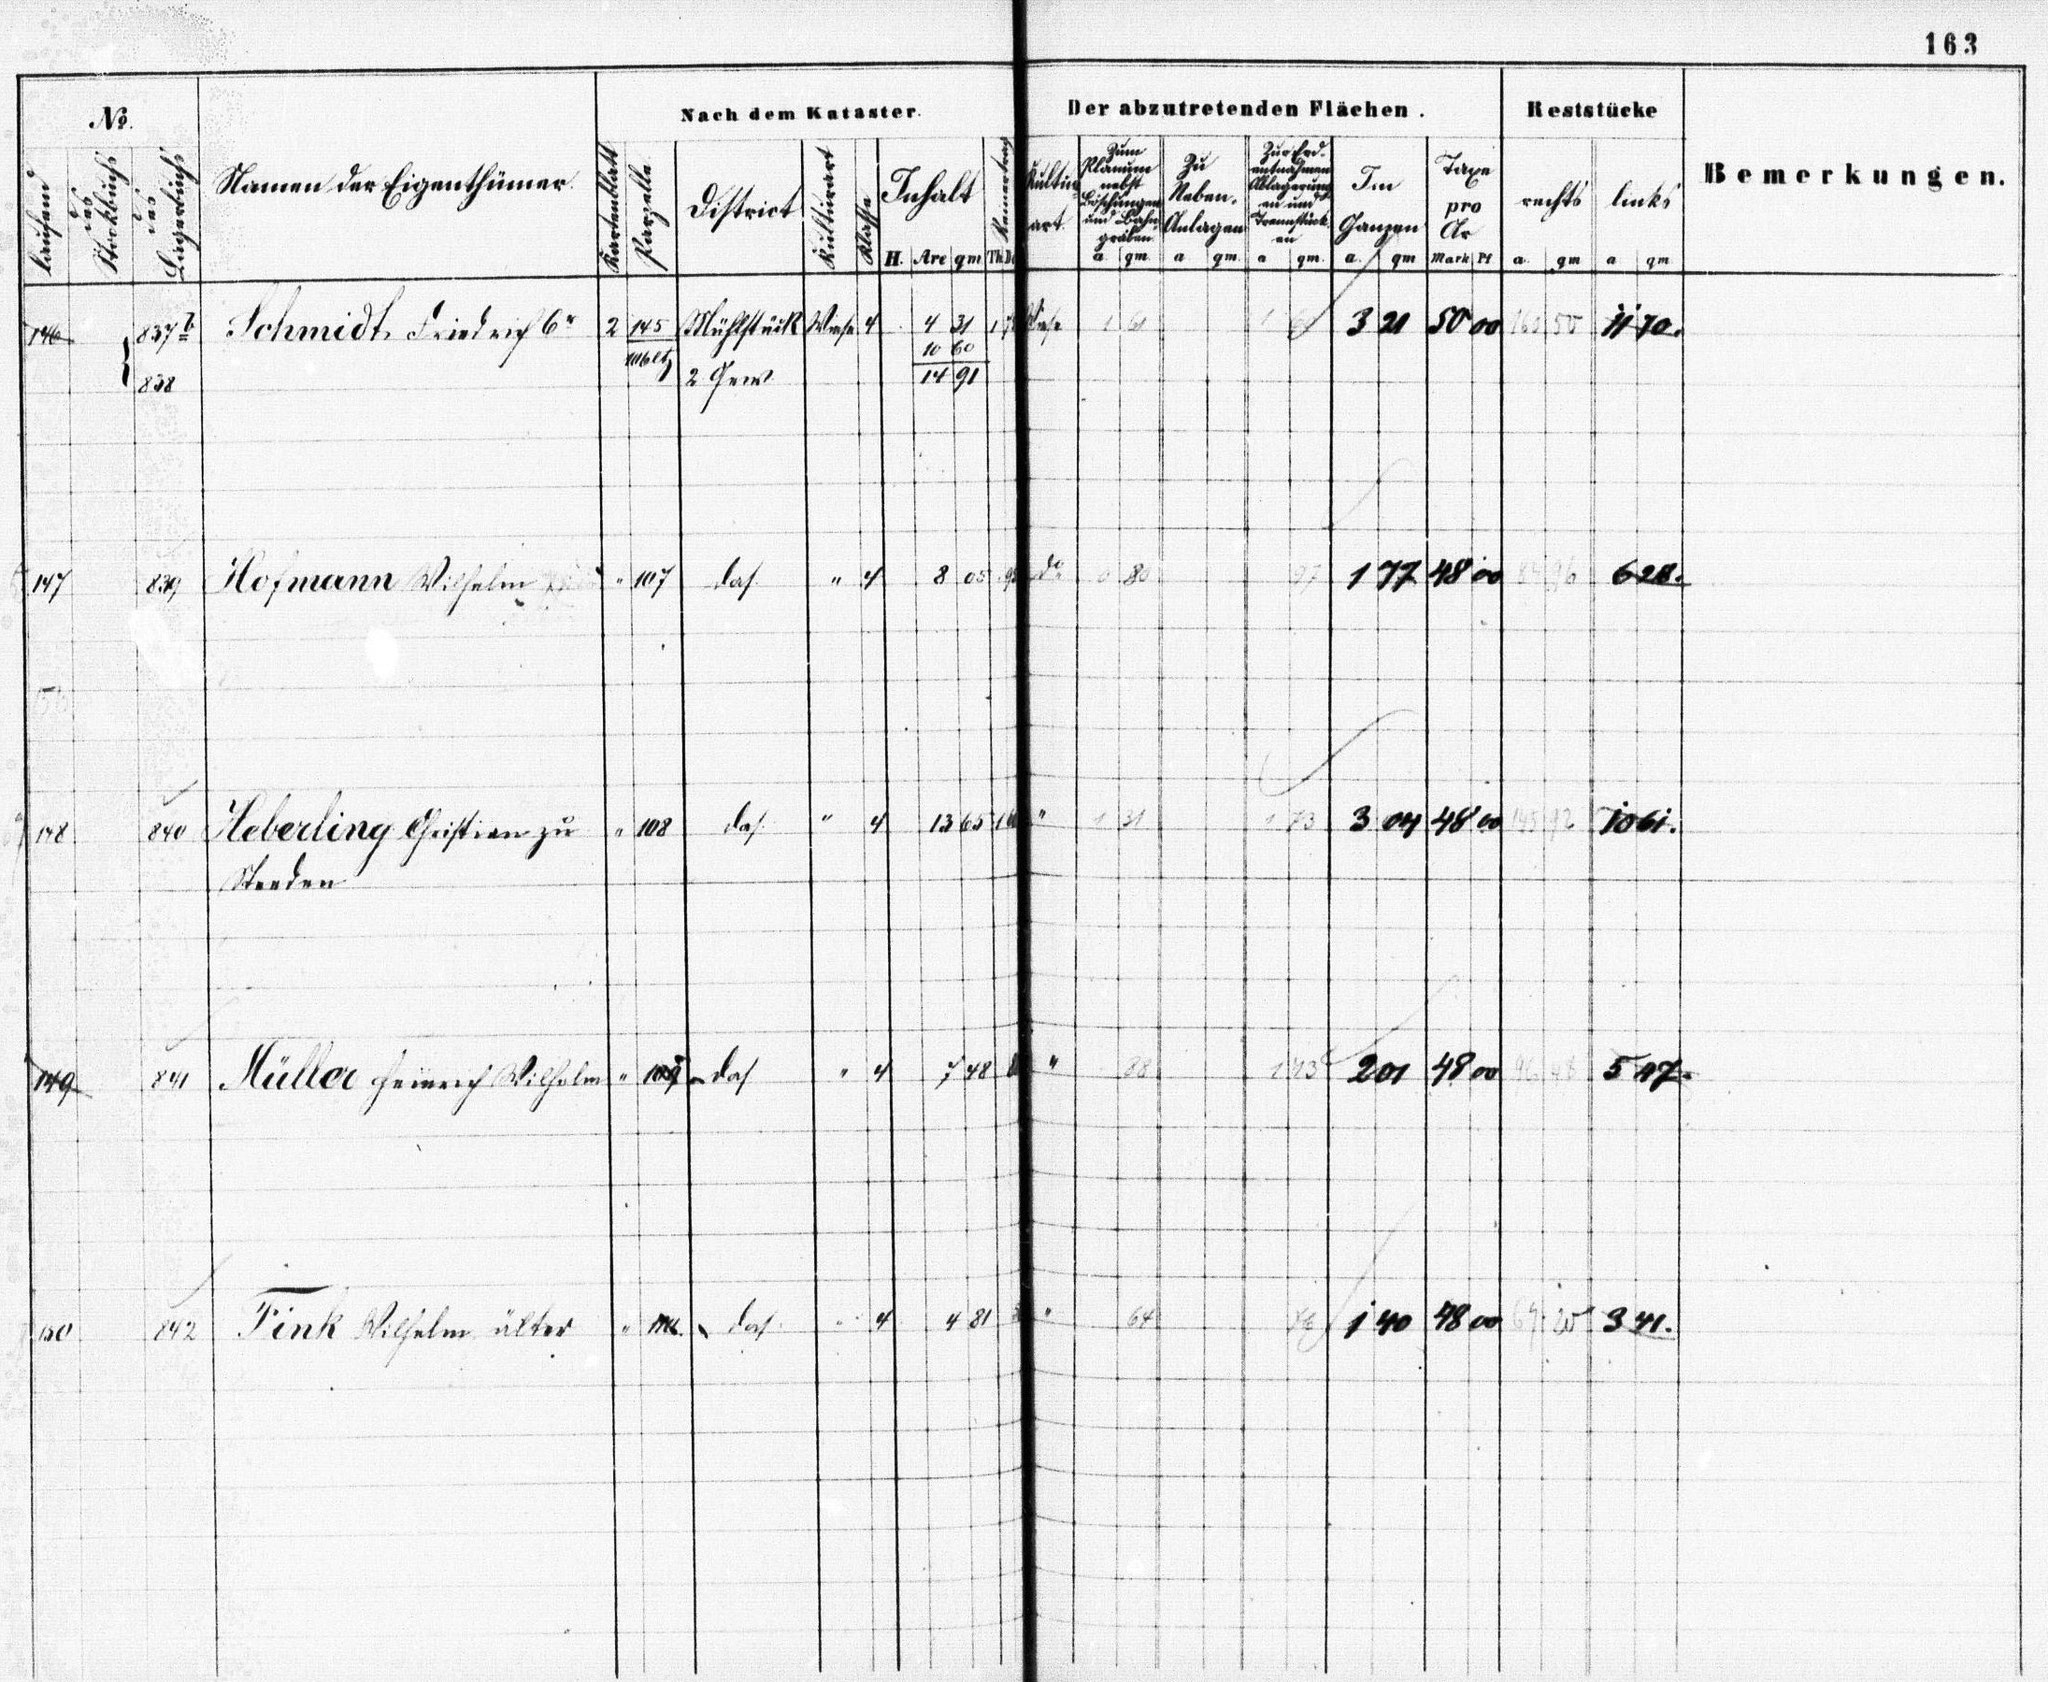 163
No. Nach dem Kataster. Der abzutretenden Flächen. Reststücke Bemerkungen.
laufend des Stockbuchs des Lagerbuchs Namen der Eigenthümer. Kartenblatt Parzelle District Kulturart Klasse Inhalt Reinertrag Kultur-art. Zum Planum nebst Böschungen und Bahngräben. Zu Neben-Anlagen Zur Erdentnahmen Ablagerungen und Trennstücken Im Ganzen Taxe pro Ar rechts links
H. Are qm Th. a. qm. a qm. a qm. a. qm Mark Pf a. qm a qm.
146 837 b Schmidt, Friedrich 6r 2 145 Mühlstück Wiese 4 4 31 Wiese 1 61 3 21 50 00 160 50 11 70.
106 etz 10 60
838 2 Gew. 14 91
147 839 Hofmann Wilhelm " 107 das. " 4 8 05 do 0 80 97 1 77 48 00 84 96 6 28.
148 840 Heberling Christian zu " 108 das. " 4 13 65 " 1 31 1 73 3 04 48 00 145 92 10 61.
Steeden
149 841 Müller Heinrich Wilhelm " 109 das " 4 7 48 " 88 1 13 2 01 48 00 96 48 5 47.
150 842 Fink Wilhelm älter " das. " 4 4 81 " 64 76 1 40 48 00 67 20 3 41.